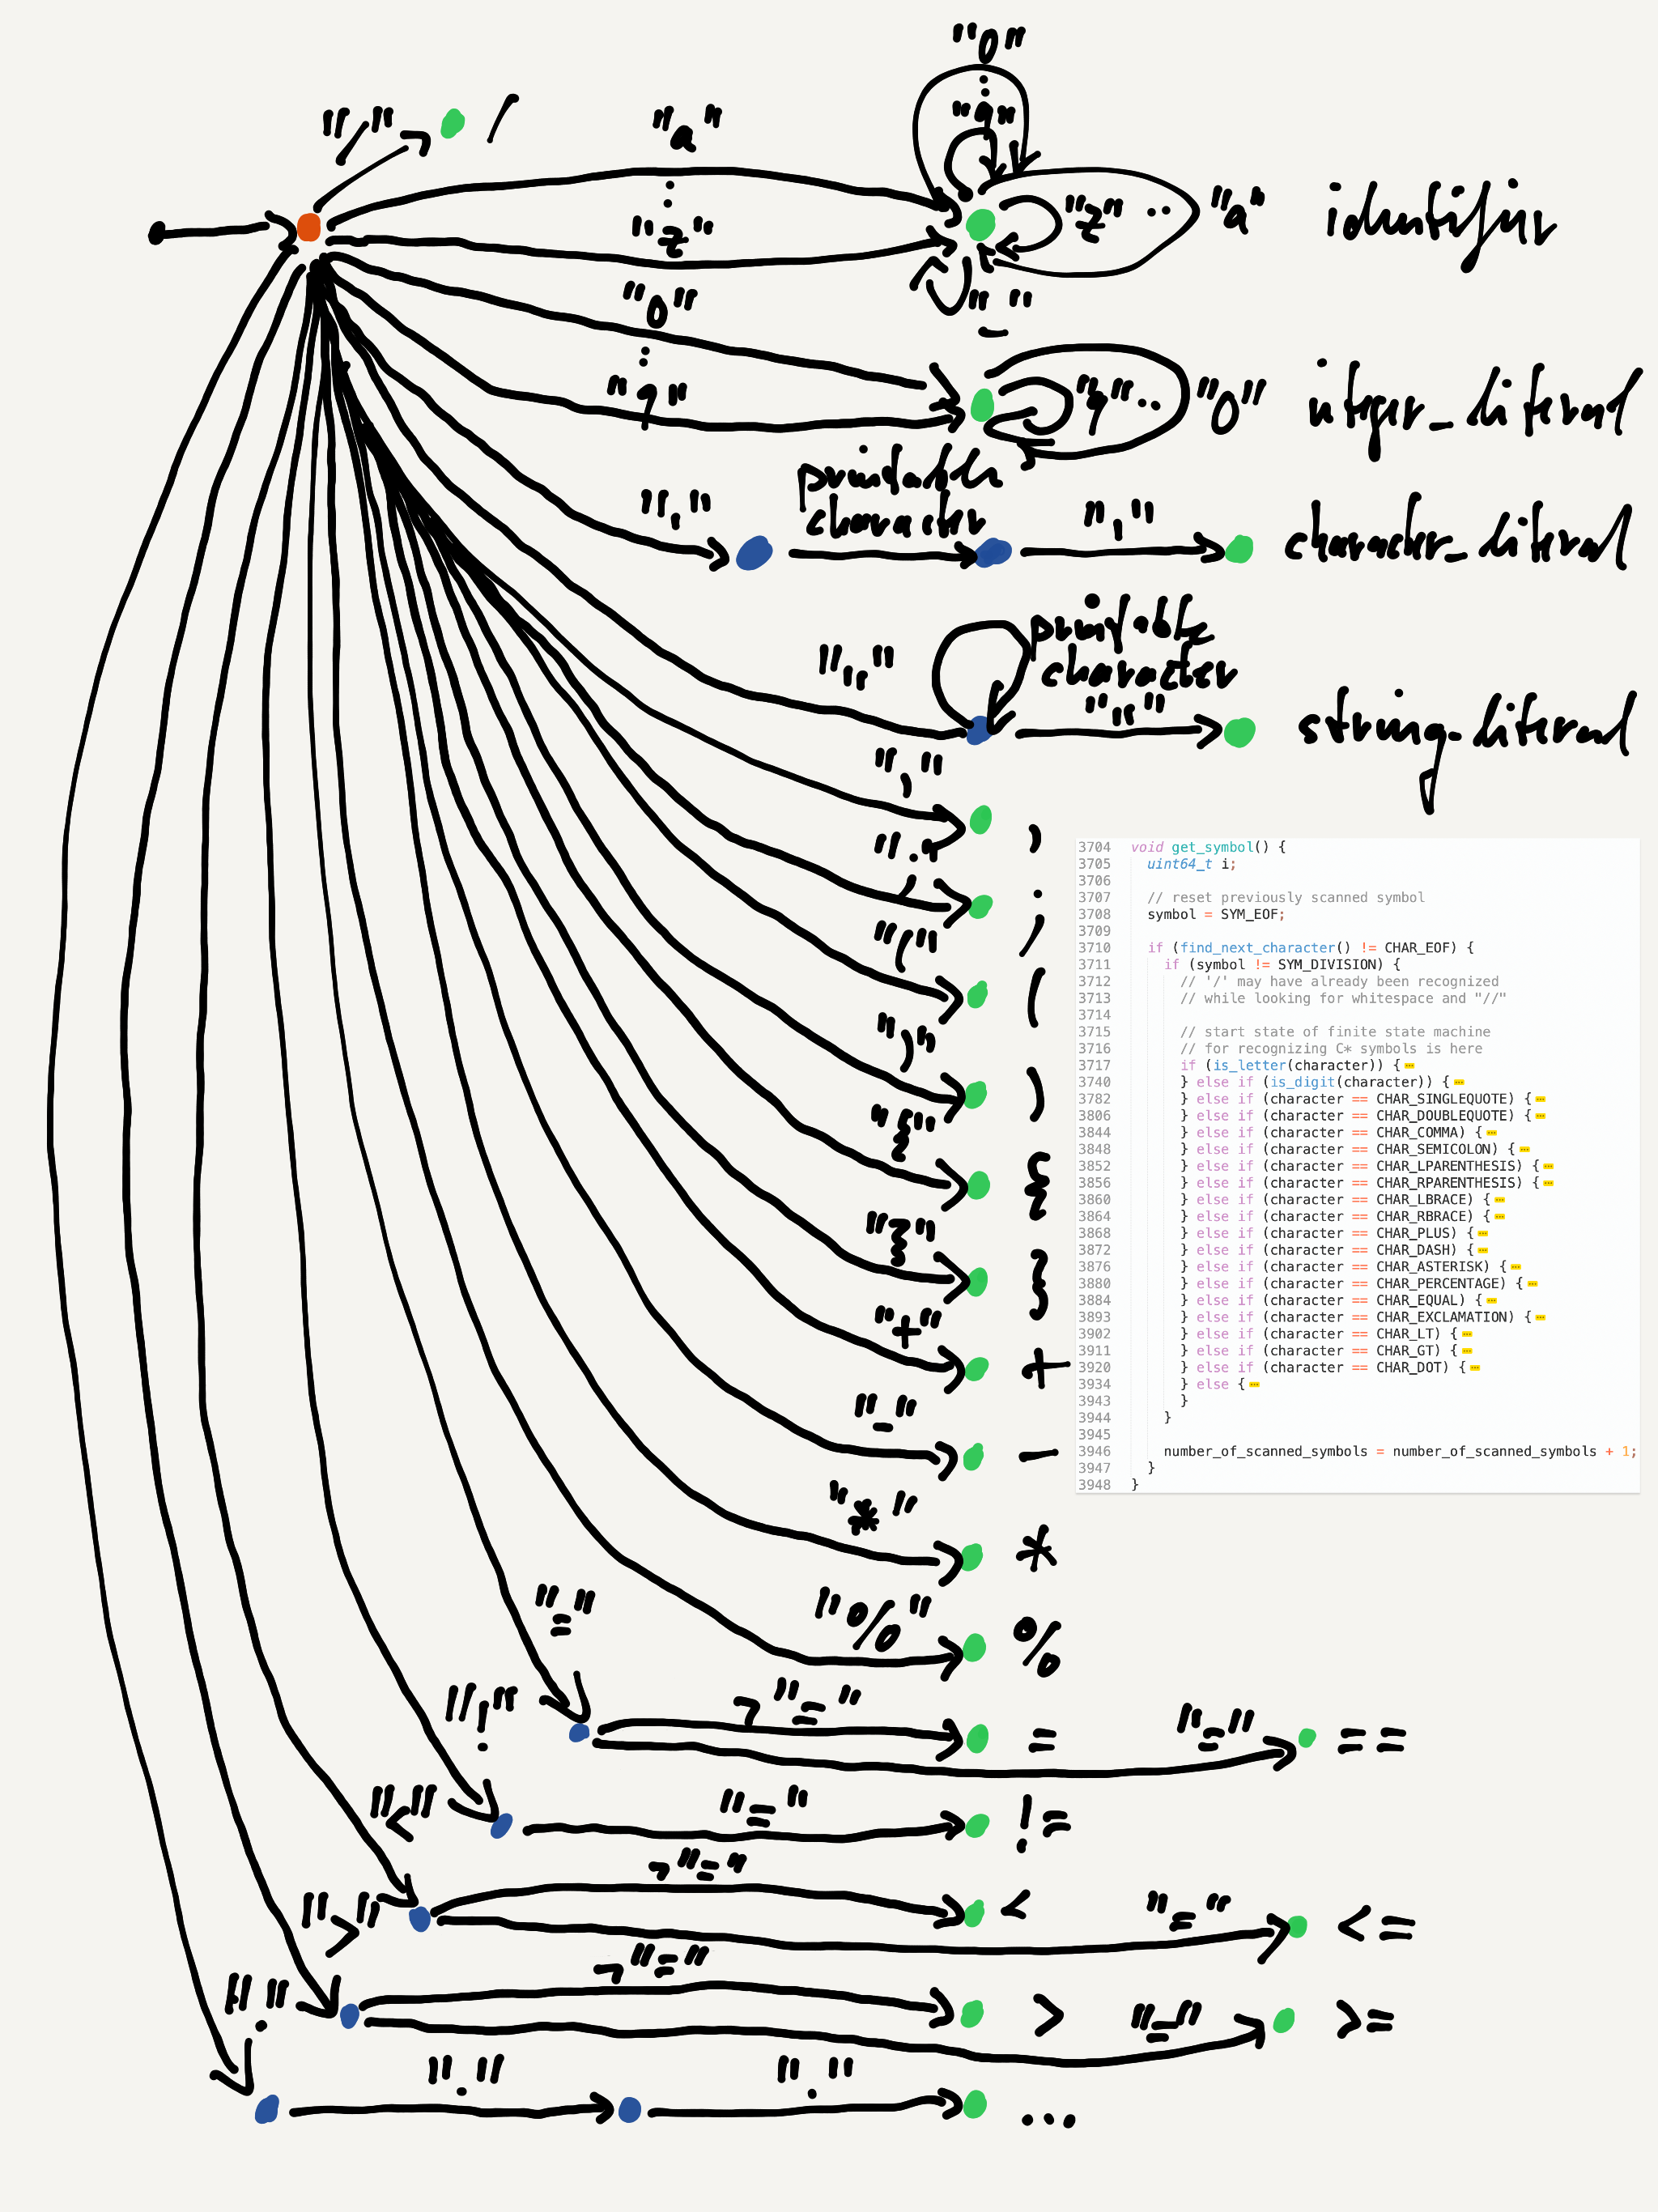 "0"
⋮
"9"
"/" /
"a"
⋮
"z"
"z" .. "a" identifier
"_"
"0"
⋮
"9"
"9" .. "0" integer_literal
"'" printable
character "'" character_literal
""" printable
character
""" string_literal
"," ,
";" ;
"(" (
")" )
"{" {
"}" }
"+" +
"-" -
"*" *
"%" %
"=" ¬"=" = "=" ==
"!" "=" !=
"<" ¬"=" < "=" <=
">" ¬"=" > "=" >=
"." "." "." ...
3704 void get_symbol() {
3705 uint64_t i;
3706
3707 // reset previously scanned symbol
3708 symbol = SYM_EOF;
3709
3710 if (find_next_character() != CHAR_EOF) {
3711 if (symbol != SYM_DIVISION) {
3712 // '/' may have already been recognized
3713 // while looking for whitespace and "//"
3714
3715 // start state of finite state machine
3716 // for recognizing C* symbols is here
3717 if (is_letter(character)) {⋯
3740 } else if (is_digit(character)) {⋯
3782 } else if (character == CHAR_SINGLEQUOTE) {⋯
3806 } else if (character == CHAR_DOUBLEQUOTE) {⋯
3844 } else if (character == CHAR_COMMA) {⋯
3848 } else if (character == CHAR_SEMICOLON) {⋯
3852 } else if (character == CHAR_LPARENTHESIS) {⋯
3856 } else if (character == CHAR_RPARENTHESIS) {⋯
3860 } else if (character == CHAR_LBRACE) {⋯
3864 } else if (character == CHAR_RBRACE) {⋯
3868 } else if (character == CHAR_PLUS) {⋯
3872 } else if (character == CHAR_DASH) {⋯
3876 } else if (character == CHAR_ASTERISK) {⋯
3880 } else if (character == CHAR_PERCENTAGE) {⋯
3884 } else if (character == CHAR_EQUAL) {⋯
3893 } else if (character == CHAR_EXCLAMATION) {⋯
3902 } else if (character == CHAR_LT) {⋯
3911 } else if (character == CHAR_GT) {⋯
3920 } else if (character == CHAR_DOT) {⋯
3934 } else {⋯
3943 }
3944 }
3945
3946 number_of_scanned_symbols = number_of_scanned_symbols + 1;
3947 }
3948 }